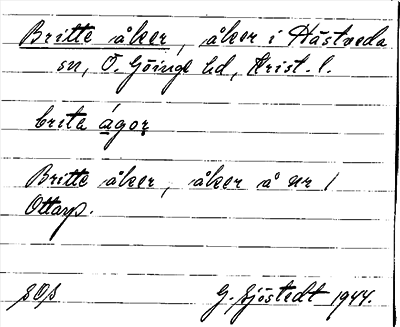 Britte åker, åker i Hästveda
sn, Ö. Göinge hd, Krist. l.
brita ágoṛ
Britte åker, åker å nr 1
Ottarp.
G. Sjöstedt 1944.